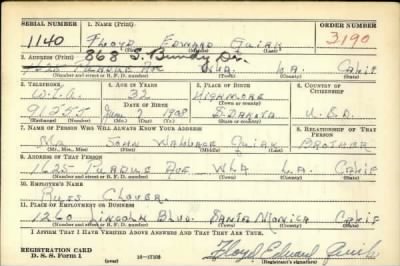 SERIAL NUMBER 1. NAME (Print) ORDER NUMBER
1140 FLOYD EDWARD QUIRK 3190
(First) (Middle) (Last)
868 S. Bundy Dr.
2. ADDRESS (Print)
1625 PURDUE AVE W.L.A. L.A. CALIF
(Number and street or R. F. D. number) (Town) (County) (State)
3. TELEPHONE 4. AGE IN YEARS 5. PLACE OF BIRTH 6. COUNTRY OF CITIZENSHIP
W.L.A. 32 HIGHMORE
DATE OF BIRTH (Town or county)
June 1908 S. DAKOTA U.S.A.
(Exchange) (Number) (Mo.) (Day) (Yr.) (State or country)
7. NAME OF PERSON WHO WILL ALWAYS KNOW YOUR ADDRESS 8. RELATIONSHIP OF THAT PERSON
JOHN WALLACE QUIRK BROTHER
(Mr., Mrs., Miss) (First) (Middle) (Last)
9. ADDRESS OF THAT PERSON
1625 PURDUE AVE WLA L.A. CALIF
(Number and street or R. F. D. number) (Town) (County) (State)
10. EMPLOYER'S NAME
GLOVER
11. PLACE OF EMPLOYMENT OR BUSINESS
1260 LINCOLN BLVD. SANTA MONICA CALIF
(Number and street or R. F. D. number) (Town) (County) (State)
I AFFIRM THAT I HAVE VERIFIED ABOVE ANSWERS AND THAT THEY ARE TRUE.
REGISTRATION CARD
D. S. S. Form 1 (over) 16—17105 Floyd Edward Quirk
(Registrant's signature)